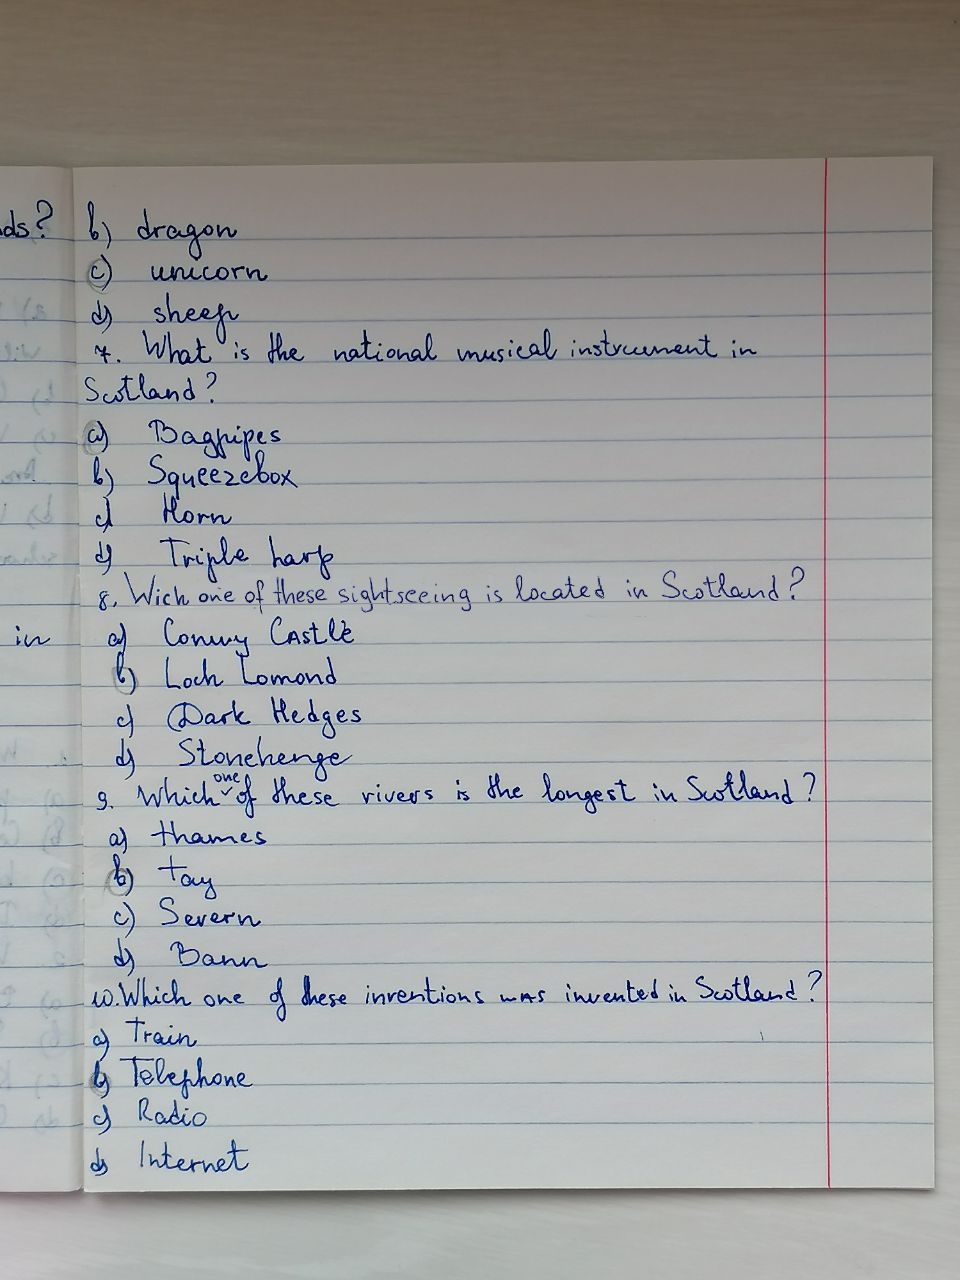 ds?
b) dragon
c) unicorn
d) sheep
7. What is the national musical instrument in
Scotland?
a) Bagpipes
b) Squeezebox
c) Horn
d) Triple harp
8. Wich one of these sightseeing is located in Scotland?
in
a) Conwy CAstle
b) Loch Lomond
c) Dark Hedges
d) Stonehenge
9. Which one of these rivers is the longest in Scotland?
a) thames
b) tay
c) Severn
d) Bann
10. Which one of these inventions wAs invented in Scotland?
a) Train
b) Telephone
c) Radio
d) Internet